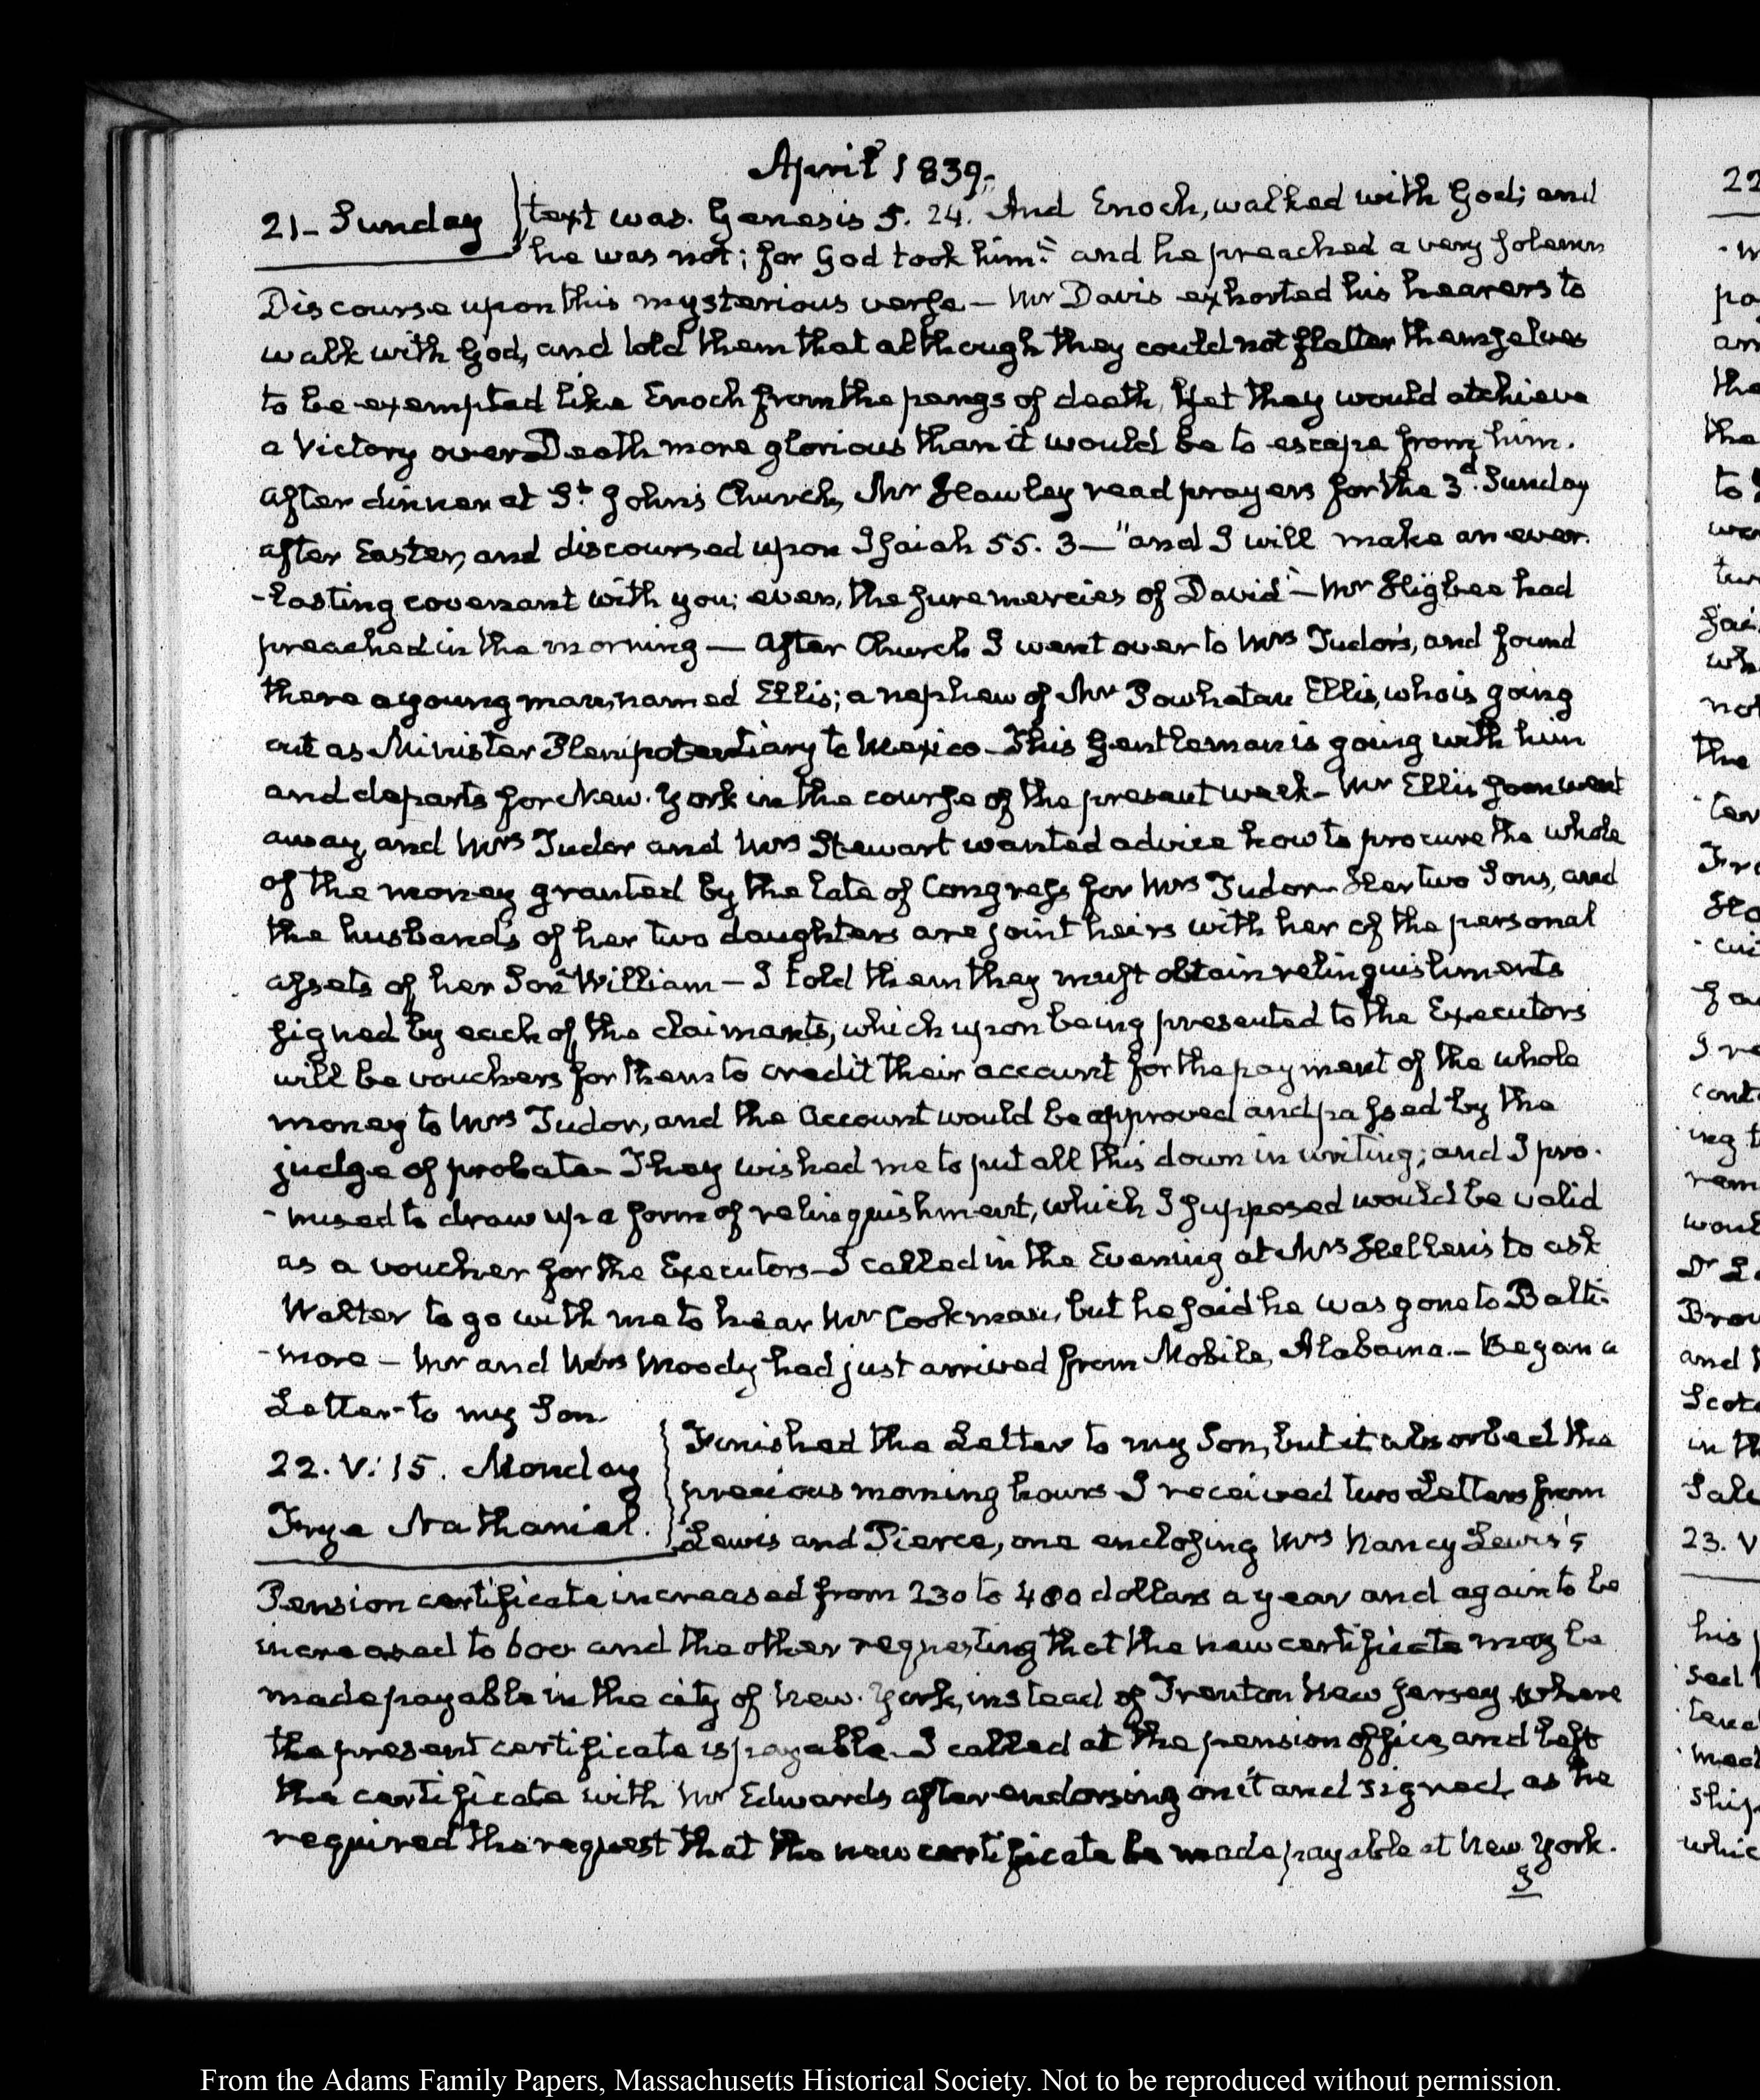 April 1839.
21- Sunday
text was. Genesis 5. 24. And Enoch, walked with God; and
he was not; for God took him." and he preached a very solemn
Discourse upon this mysterious verse — Mr Davis exhorted his hearers to
walk with God, and told them that although they could not flatter themselves
to be exempted like Enoch from the pangs of death, yet they would atchieve
a Victory over Death more glorious than it would be to escape from him.
After dinner at St. John's Church, Mr Hawley read prayers for the 3d. Sunday
after Easter, and discoursed upon Isaiah 55. 3— "and I will make an ever-
-lasting covenant with you; even, the sure mercies of David" — Mr Higbee had
preached in the morning — After Church I went over to Mrs Tudor's, and found
there a young man, named Ellis; a nephew of Mr Powhatan Ellis, who is going
out as Minister Plenipotentiary to Mexico — This Gentleman is going with him
and departs for New-York in the course of the present week — Mr Ellis soon went
away, and Mrs Tudor and Mrs Stewart wanted advice how to procure the whole
of the money granted by the late of Congress for Mrs Tudor — Her two Sons, and
the husbands of her two daughters are joint heirs with her of the personal
assets of her Son William — I told them they must obtain relinquishments
signed by each of the claimants, which upon being presented to the Executors
will be vouchers for them to credit their account for the payment of the whole
money to Mrs Tudor, and the Account would be approved and passed by the
judge of probate — They wished me to put all this down in writing; and I pro-
-mised to draw up a form of relinquishment, which I supposed would be valid
as a voucher for the Executors — I called in the Evening at Mrs Hellen's to ask
Walter to go with me to hear Mr Cookman, but he said he was gone to Balti-
-more — Mr and Mrs Moody had just arrived from Mobile, Alabama. — Began a
Letter to my Son.
22. V: 15. Monday
Frye Nathaniel.
Finished the Letter to my Son, but it absorbed the
precious morning hours — I received two Letters from
Lewis and Pierce, one enclosing Mrs Nancy Lewis's
Pension certificate increased from 230 to 400 dollars a year and again to be
increased to 600 and the other requesting that the new certificate may be
made payable in the city of New-York, instead of Trenton New Jersey where
the present certificate is payable — I called at the pension office, and left
the certificate with Mr Edwards after endorsing on it and signed, as he
required the request that the new certificate be made payable at New York.
I
22
23. V
From the Adams Family Papers, Massachusetts Historical Society. Not to be reproduced without permission.